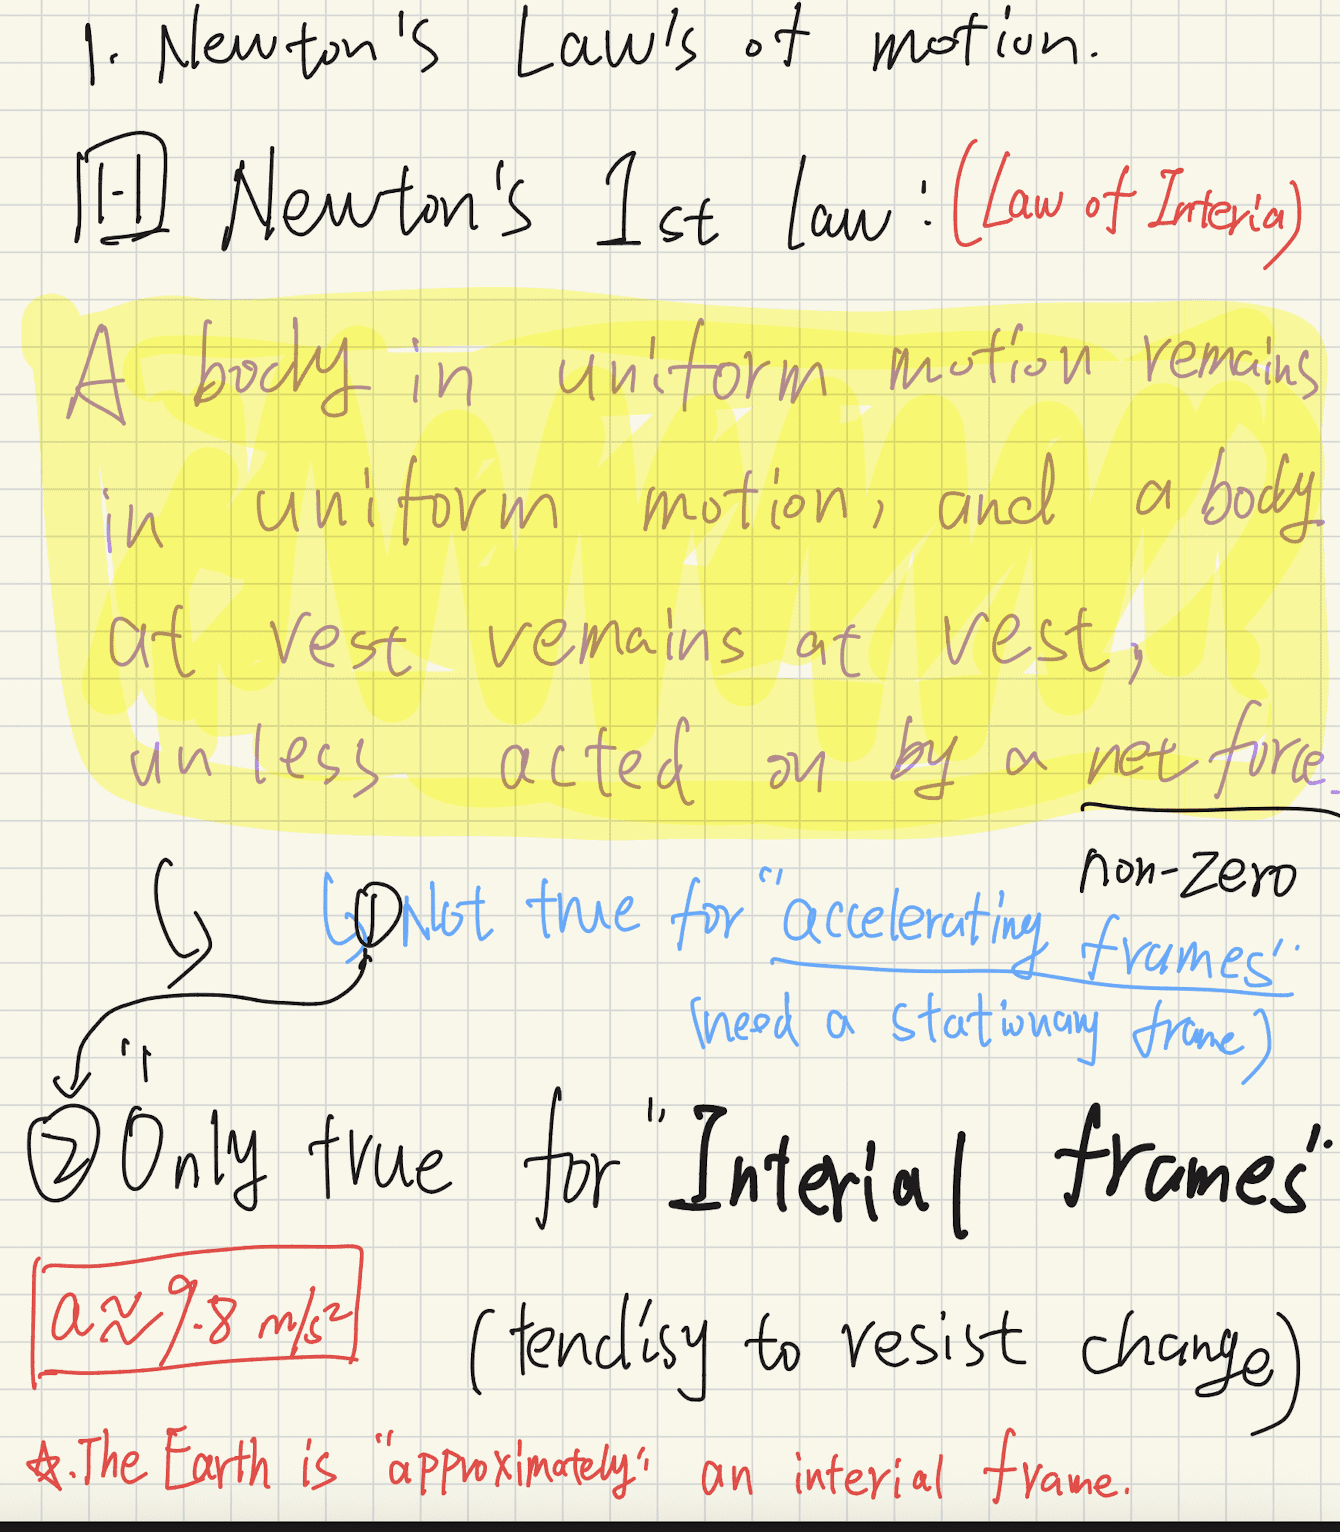 1. Newton's Law's of motion.
1-1 Newton's 1st law: (Law of Interia)
A body in uniform motion remains
in uniform motion, and a body
at rest remains at rest,
unless acted on by a net force.
non-zero
① Not true for "accelerating frames"
(need a stationary frame)
② "Only true for "Interial frames"
a ≈ 9.8 m/s²
(tendisy to resist change)
☆. The Earth is "approximately" an interial frame.